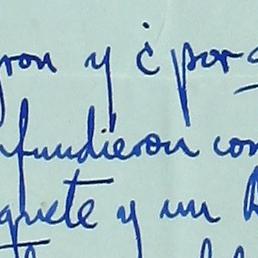 ron y ¿ por
nfundieron con
quete y un